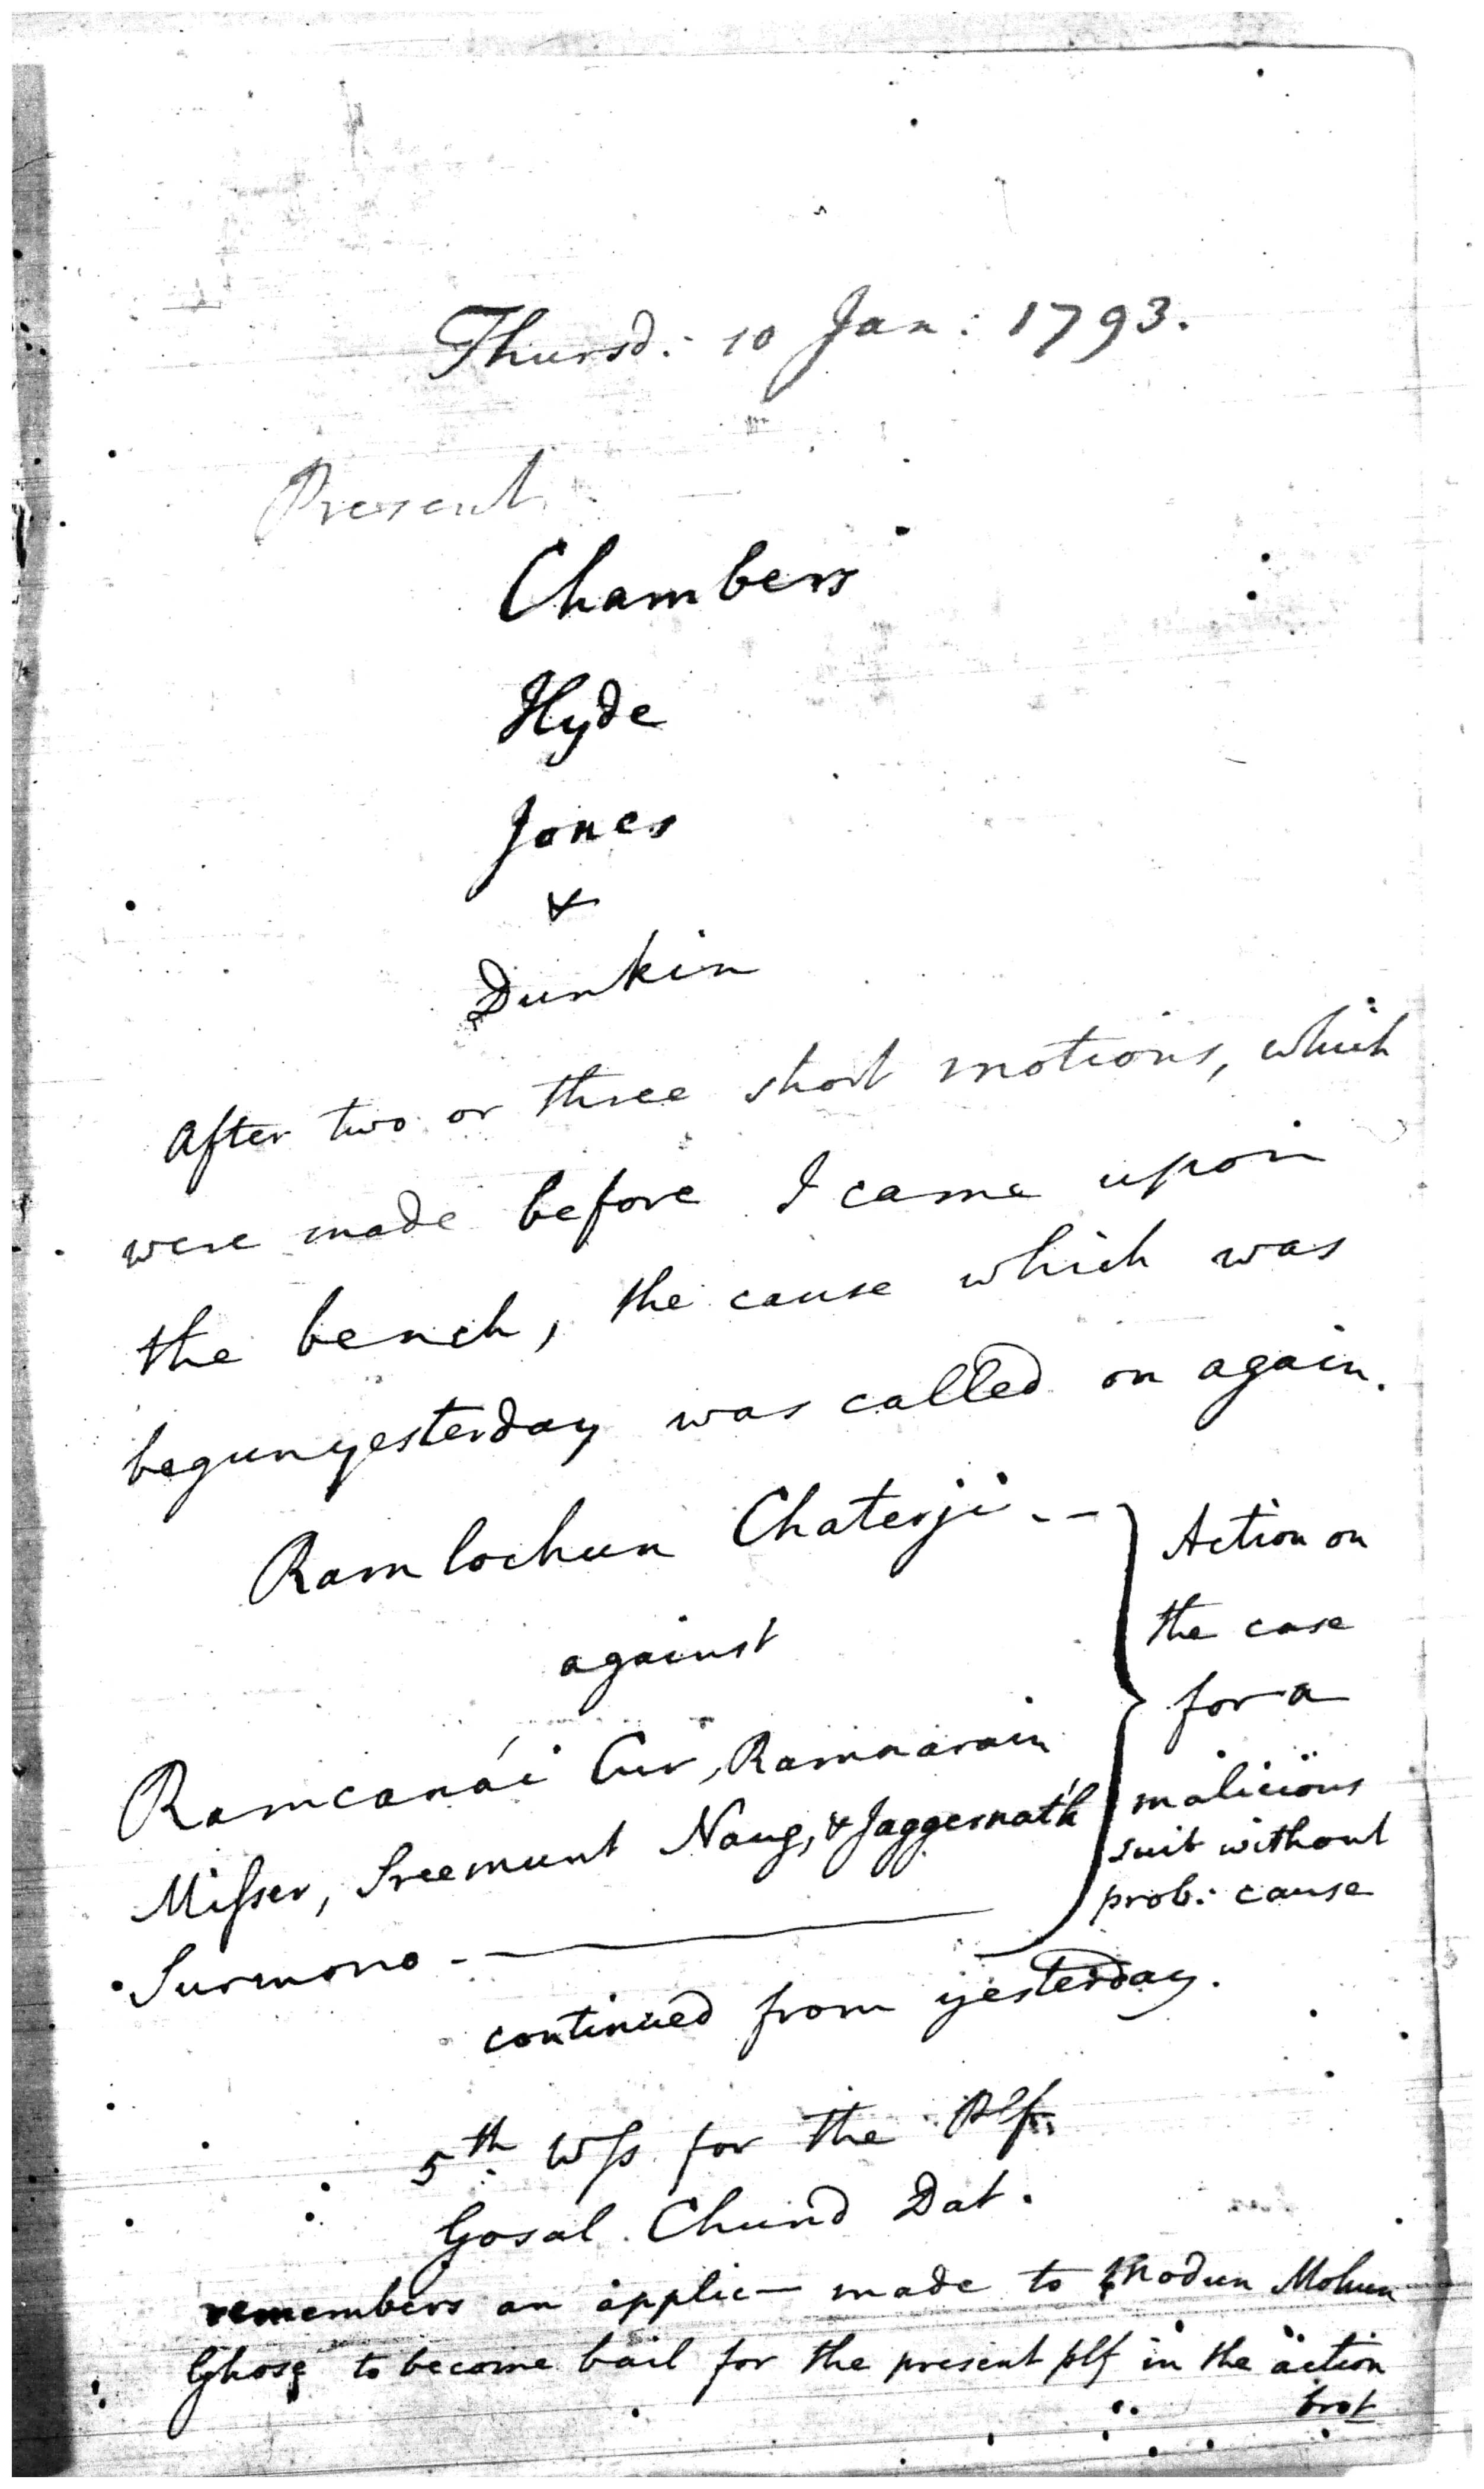 Thursd: 10 Jan: 1793.
Present
Chambers
Hyde
Jones
&
Dunkin
After two or three short motions, which
were made before I came upon
the bench, the cause which was
begun yesterday was called on again.
Ramlochun Chaterji --
against
Ramcanái Cur, Ramnarain
Misser, Sreemunt Naug, & Jaggernath
Surmono -
Action on
the case
for a
malicious
suit without
prob: cause
continued from yesterday.
5th Wss for the Plf
Gosal Chund Dat.
remembers an applic— made to Modun Mohun
Ghose to become bail for the present plf in the action
brot